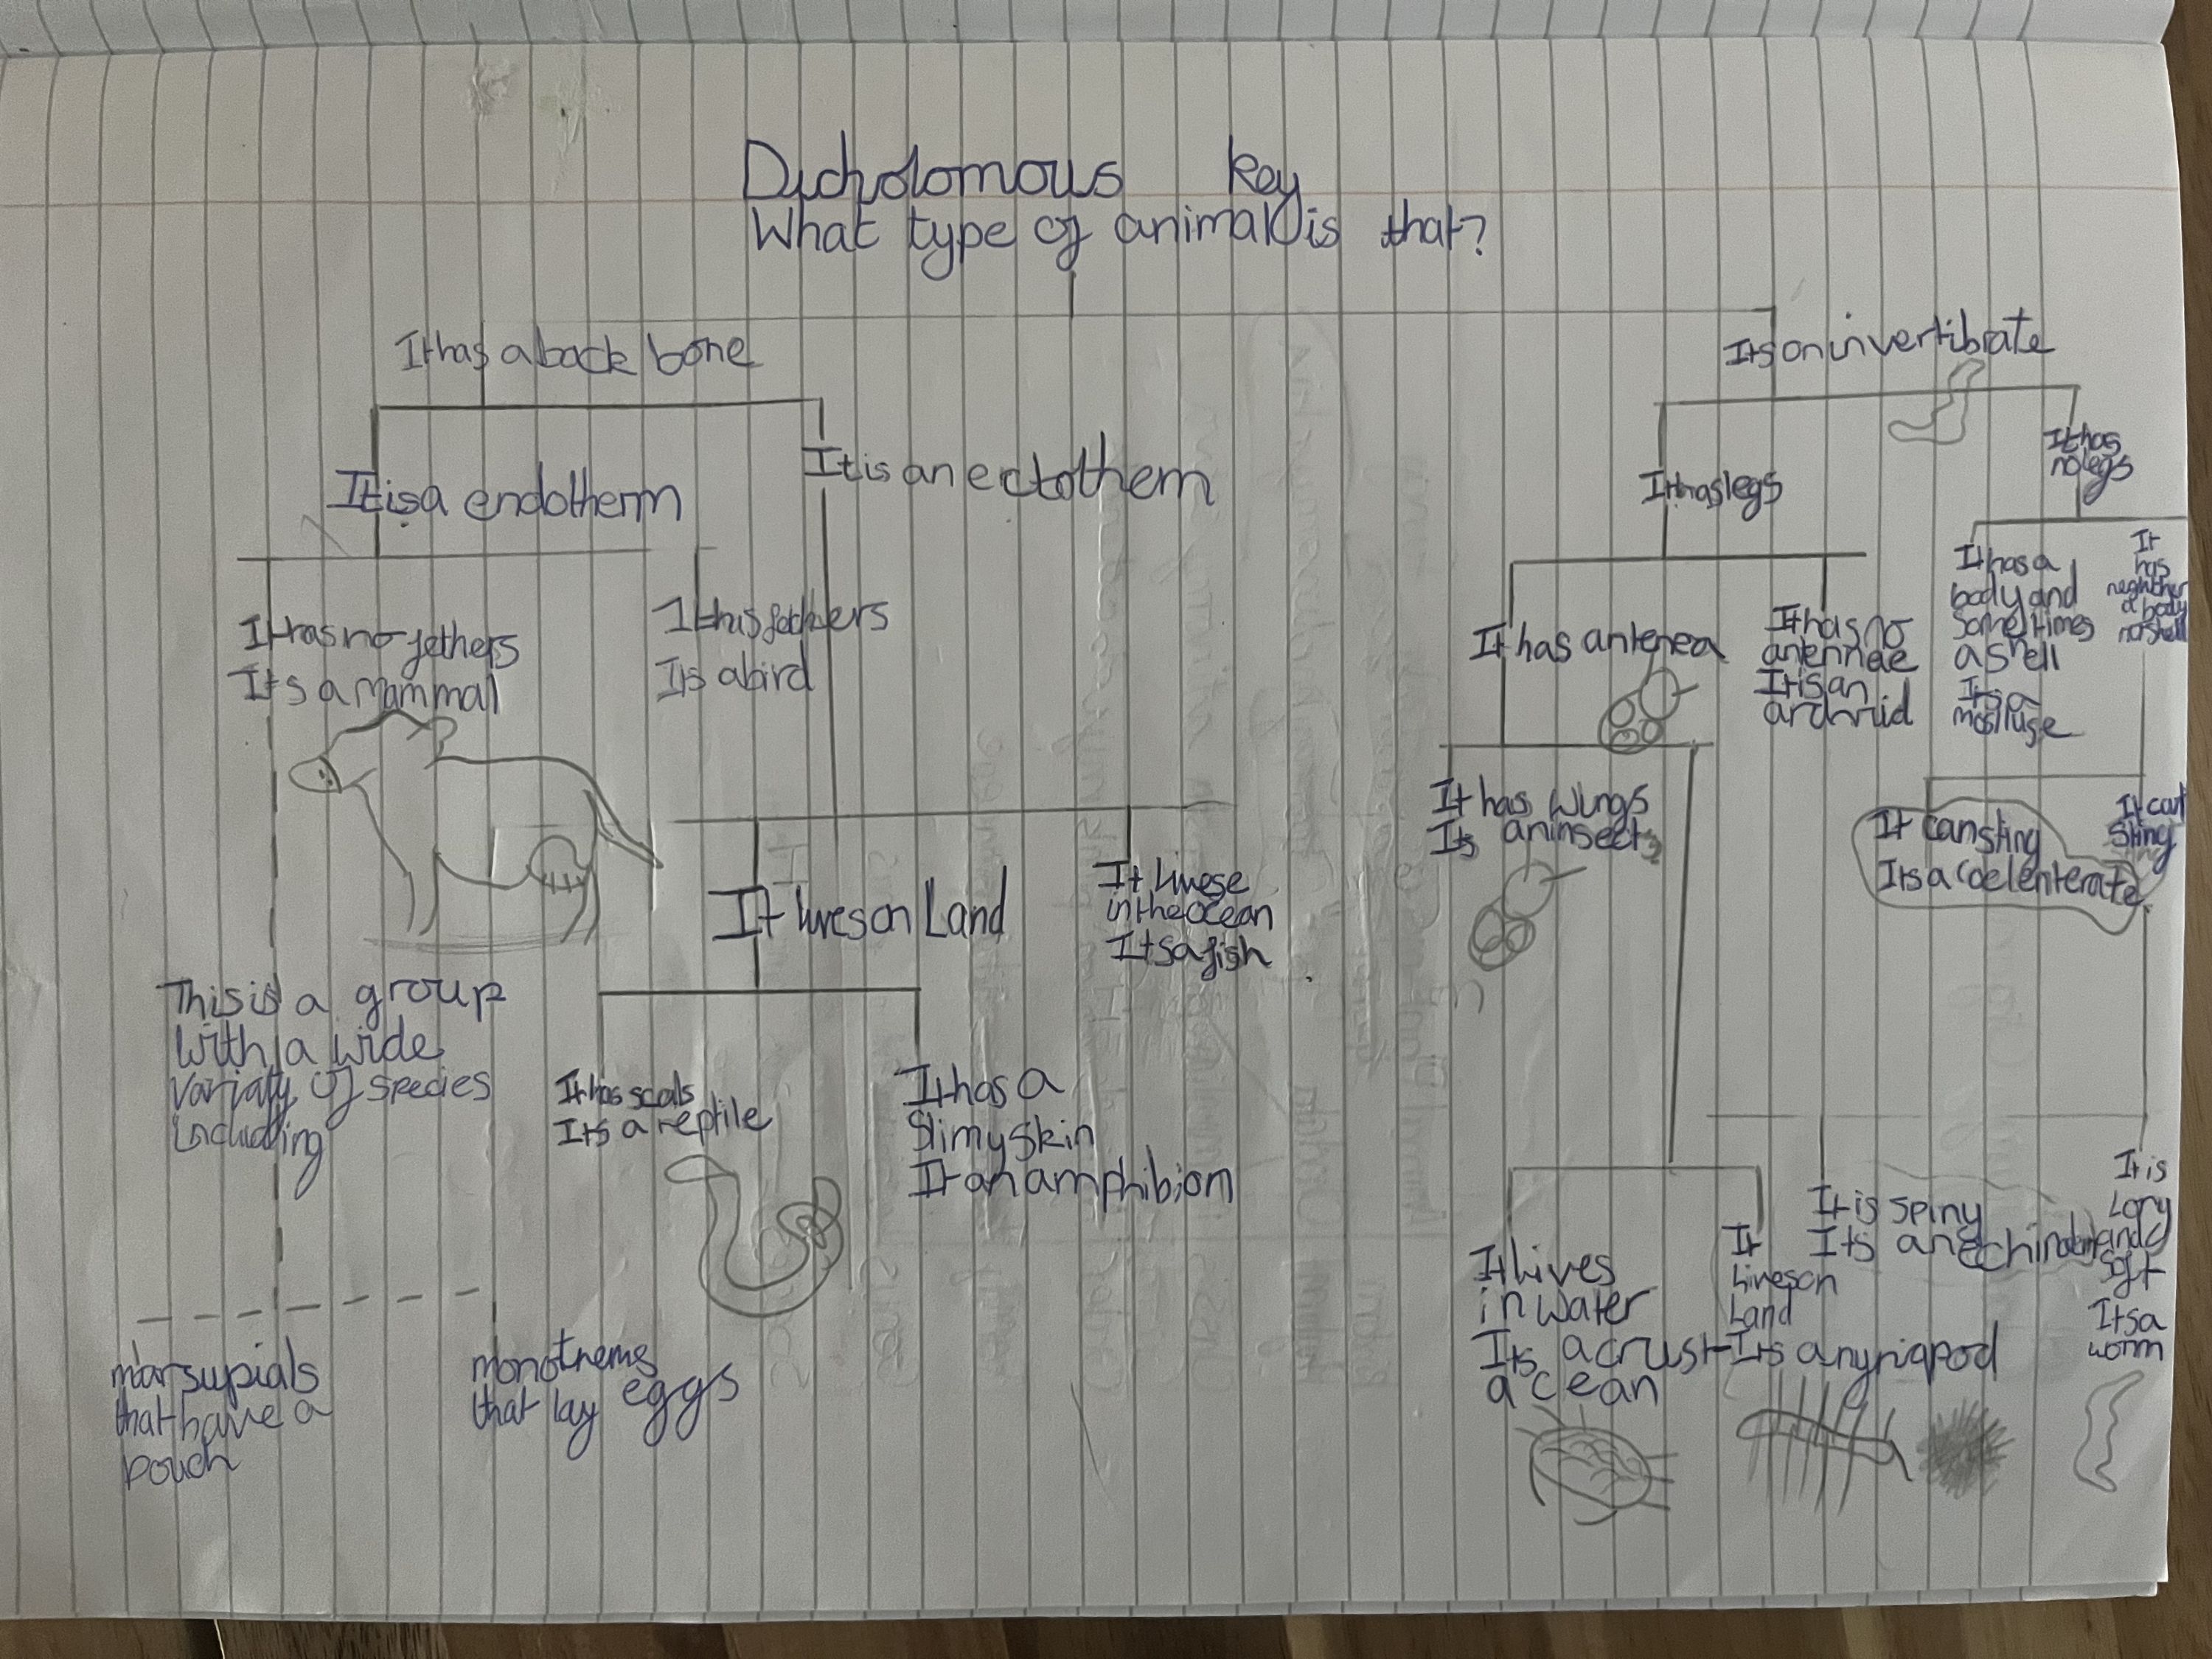 Dicholomous key
What type of animal is that?
It has a back bone
Its an invertibrate
It is a endotherm
It is an ectothem
It has legs
It has
no legs
It has no fethers
Its a mammal
It has fethers
Its a bird
It has antenea
It has no
antennae
It is an
It has a
body and
sometimes
a shell
It is a
It
has
a body
nor shell
It has wings
Its an insect
It can sting
Its a Coelenterate
It cant
Sting
It lives on Land
It livese
in the ocean
Its a fish
This is a group
with a wide
variaty of species
including
It has scals
Its a reptile
It has a
Slimy skin
It an amphibion
marsupials
that have a
pouch
monotrems
that lay eggs
It Lives
in water
Its a crust-
acean
It
Lives on
Land
Its a myriapod
It is spiny
Its an
It is
Long
and
soft
Its a
worm